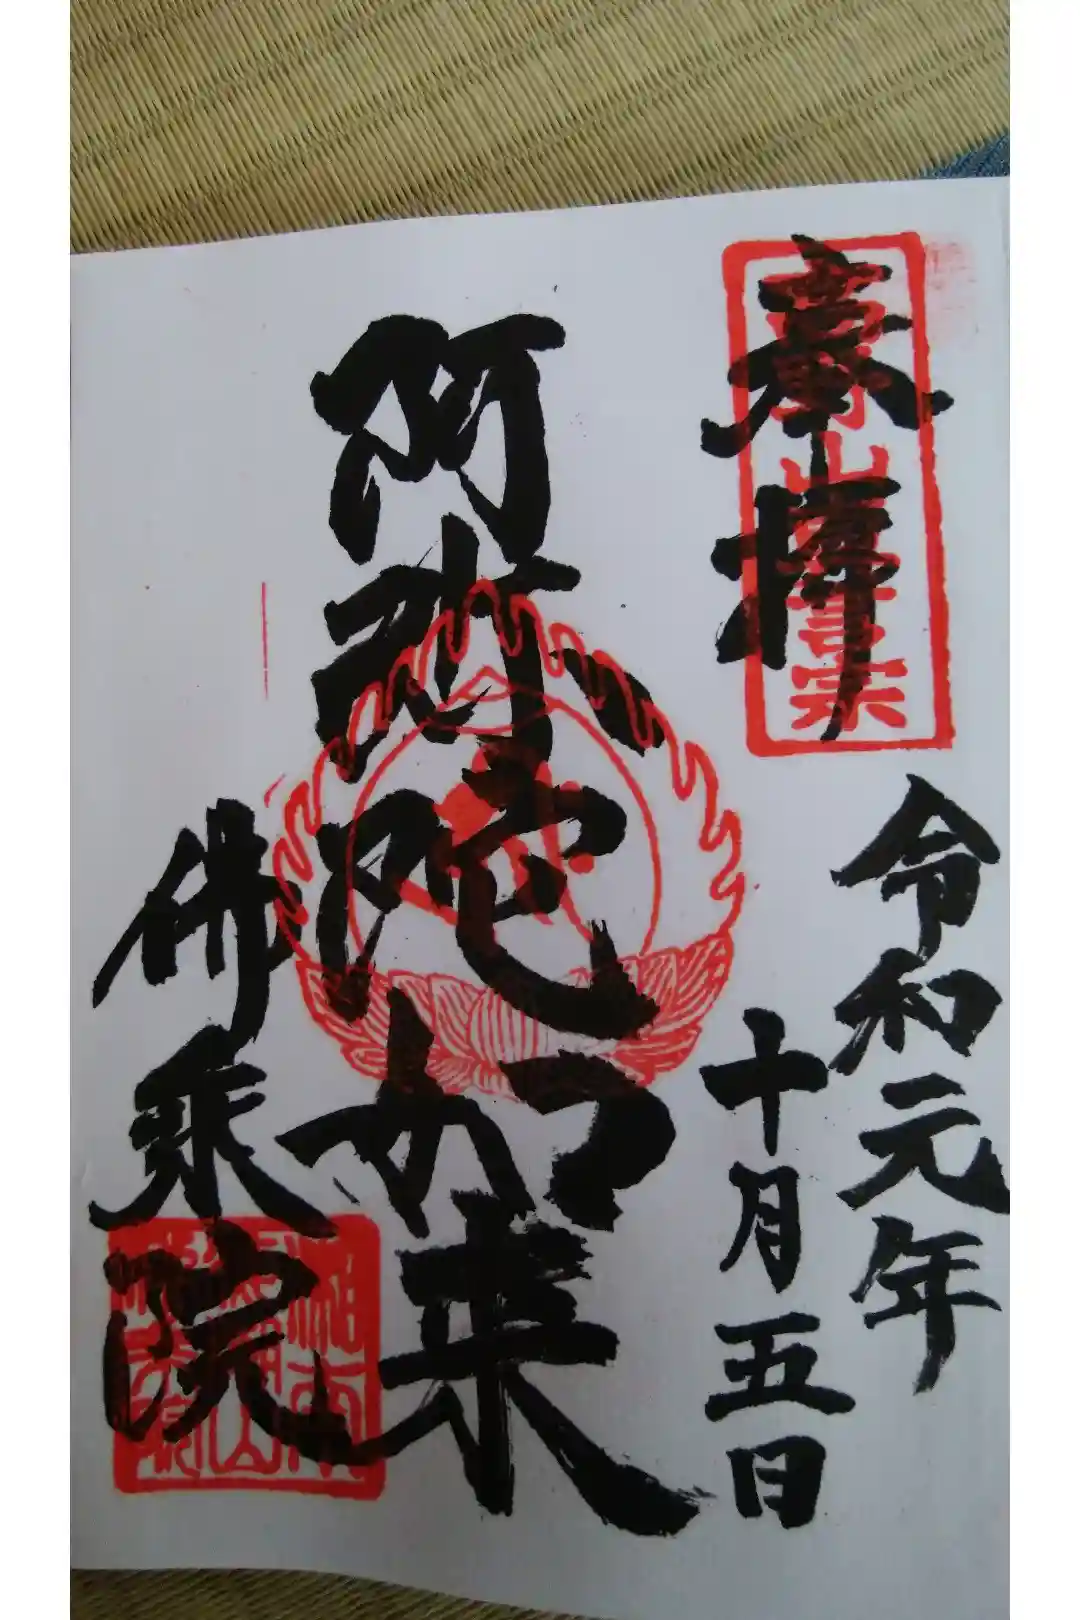 奉拝
高野山真言宗
令和元年
十月五日
阿弥陀如来
佛乘院